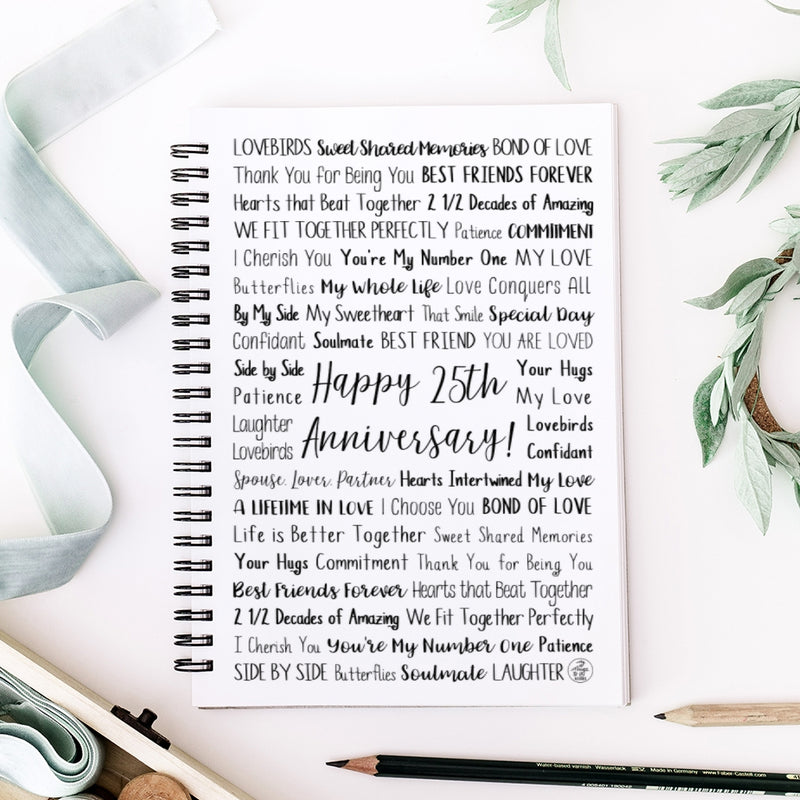 LOVEBIRDS Sweet Shared Memories BOND OF LOVE
Thank You for Being You BEST FRIENDS FOREVER
Hearts that Beat Together 2 1/2 Decades of Amazing
WE FIT TOGETHER PERFECTLY Patience COMMITMENT
I Cherish You You're My Number One MY LOVE
Butterflies My Whole Life Love Conquers All
By My Side My Sweetheart That Smile Special Day
Confidant Soulmate BEST FRIEND YOU ARE LOVED
Side by Side Your Hugs
Happy 25th
Patience My Love
Laughter Lovebirds
Anniversary!
Lovebirds Confidant
Spouse. Lover. Partner Hearts Intertwined My Love
A LIFETIME IN LOVE I Choose You BOND OF LOVE
Life is Better Together Sweet Shared Memories
Your Hugs Commitment Thank You for Being You
Best Friends Forever Hearts that Beat Together
2 1/2 Decades of Amazing We Fit Together Perfectly
I Cherish You You're My Number One Patience
SIDE BY SIDE Butterflies Soulmate LAUGHTER
Water-based varnish Wasserlack Made in Germany www.Faber-Castell.com